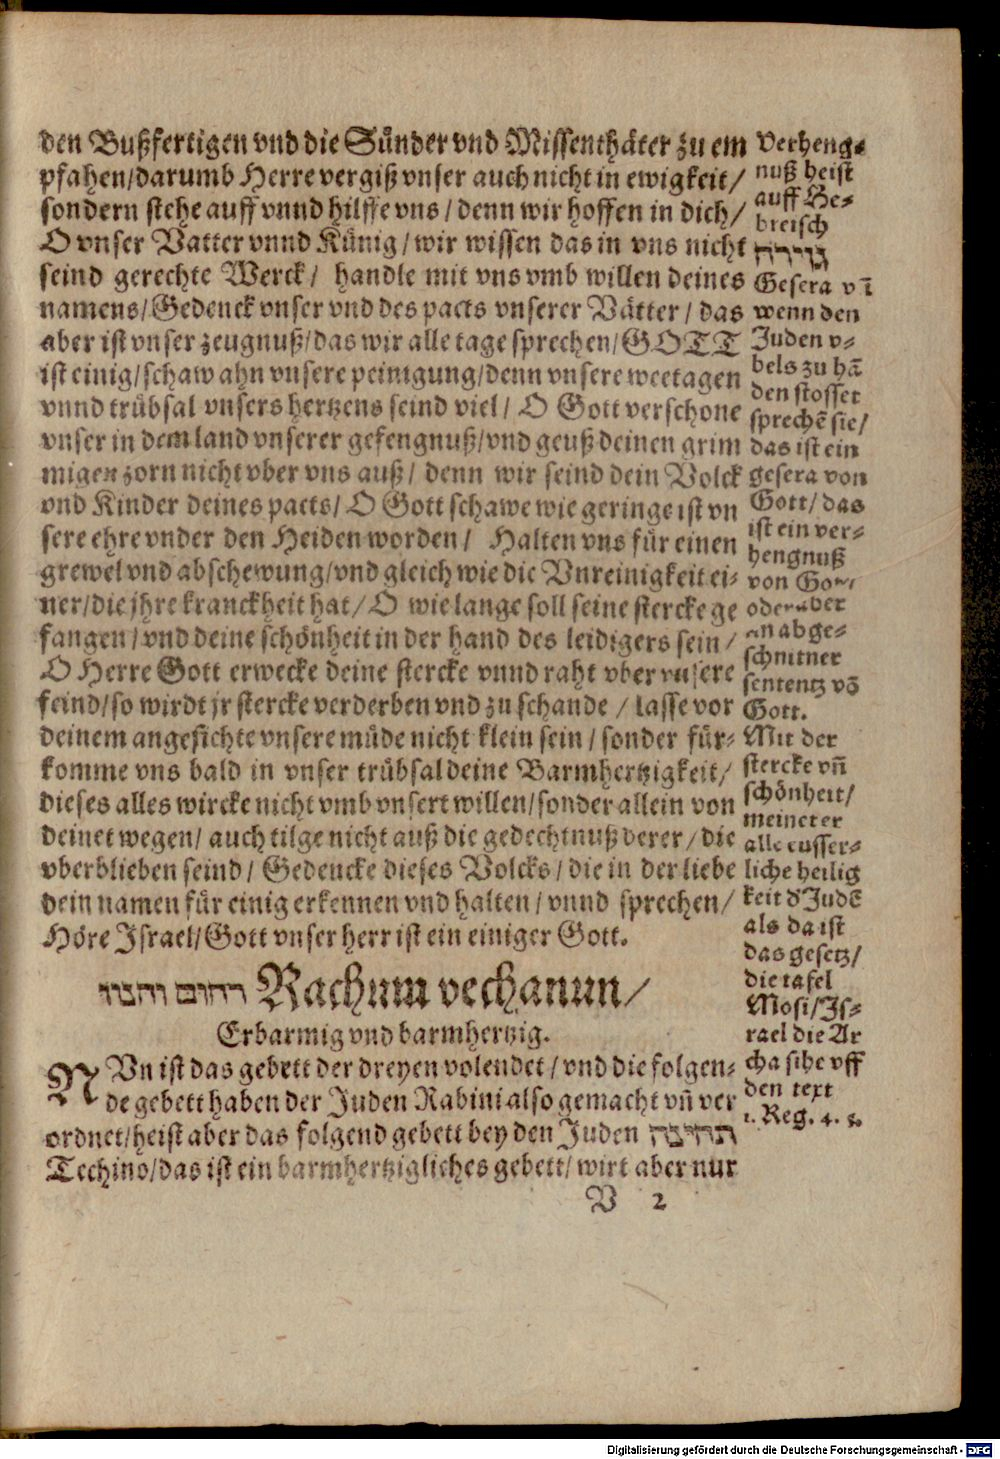 den Bußfertigen vnd die Sünder vnd Missenthäter zu em
pfahen/darumb Herre vergiß vnser auch nicht in ewigkeit/
sondern stehe auff vnnd hilffe vns/denn wir hoffen in dich/
O vnser Vatter vnnd Künig/wir wissen das in vns nicht
seind gerechte Werck/ handle mit vns vmb willen deines
namens/Gedenck vnser vnd des pacts vnserer Vätter/das
aber ist vnser zeugnuß/das wir alle tage sprechen/GOTT
ist einig/schaw ahn vnsere peinigung/denn vnsere weetagen
vnnd trübsal vnsers hertzens seind viel/ O Gott verschone
vnser in dem land vnserer gefengnuß/vnd geuß deinen grim
migen zorn nicht vber vns auß/ denn wir seind dein Volck
vnd Kinder deines pacts/O Gott schawe wie geringe ist vn
sere ehre vnder den Heiden worden/ Halten vns für einen
grewel vnd abschewung/vnd gleich wie die Vnreinigkeit ei-
ner/die jhre kranckheit hat/O wie lange soll seine stercke ge
fangen/vnd deine schönheit in der hand des leidigers sein/
O Herre Gott erwecke deine stercke vnnd raht vber vnsere
feind/so wirdt jr stercke verderben vnd zu schande/lasse vor
deinem angesichte vnsere müde nicht klein sein/sonder für-
komme vns bald in vnser trübsal deine Barmhertzigkeit/
dieses alles wircke nicht vmb vnsert willen/sonder allein von
deinet wegen/auch tilge nicht auß die gedechtnuß derer/die
vberblieben seind/Gedencke dieses Volcks/die in der liebe
dein namen für einig erkennen vnd halten/vnnd sprechen/
Höre Israel/Gott vnser herr ist ein einiger Gott.
רחום וחנון Rachum vechanun/
Erbarmig vnd barmhertzig.
NVn ist das gebett der dreyen volendet/vnd die folgen-
de gebett haben der Juden Rabini also gemacht vñ ver
ordnet/heist aber das folgend gebett bey den Juden תחינה
Techino/das ist ein barmhertzigliches gebett/wirt aber nur
V 2
Verheng-
nuß heist
auff He-
breisch
גזירה
Gesera vñ
wenn den
Juden v-
bels zu hã
den stosset
sprechẽ sie/
das ist ein
gesera von
Gott/das
ist ein ver-
hengnuß
von Gott/
oder aber
an abge-
schnitner
sententz võ
Gott.
Mit der
stercke vñ
schönheit/
meinet er
alle eusser-
liche heilig
keit d'Judẽ
als da ist
das gesetz/
die tafel
Mosi/Is-
rael die Ar
cha sihe vff
den text
1. Reg. 4.
Digitalisierung gefördert durch die Deutsche Forschungsgemeinschaft - DFG